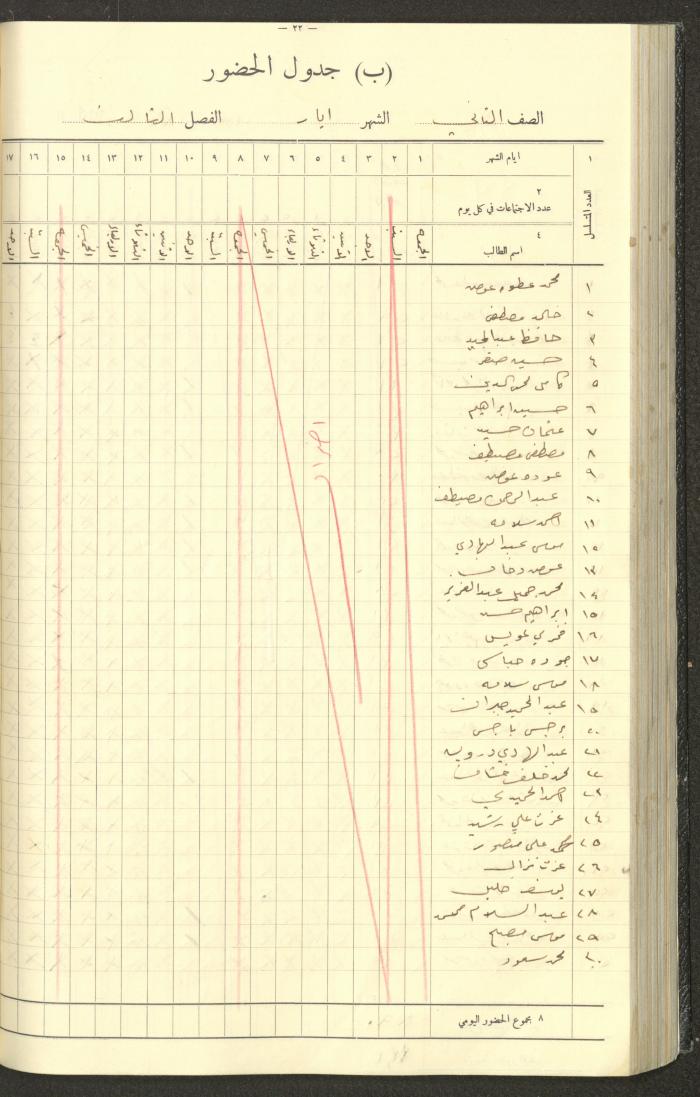 — ٢٢ —
(ب) جدول الحضور
الصف الثاني الشهر ايار الفصل الثالث
١ ايام الشهر ١ ٢ ٣ ٤ ٥ ٦ ٧ ٨ ٩ ١٠ ١١ ١٢ ١٣ ١٤ ١٥ ١٦ ١٧
العدد المتسلسل
٢
عدد الاجتماعات في كل يوم
٤
اسم الطالب
الجمعه السبت الاحد الاثنين الثلاثاء الاربعاء الخميس الجمعه السبت الاحد الاثنين الثلاثاء الاربعاء الخميس الجمعه السبت الاحد
١ محمد عطوه عوض
٢ خالد مصطفى
٣ حافظ عبد المجيد
٤ حسين صقر
٥ كامل محي الدين
٦ حسين ابراهيم
٧ عثمان حسين
٨ مصطفى مصيطف
٩ عوده عوض
١٠ عبد الرحمن مصيطف
١١ احمد سلامه
١٢ موسى عبد الهادي
١٣ عوض
١٤ محمد جميل عبد العزيز
١٥ ابراهيم حسن
١٦ فخري عويس
١٧ جوده
١٨ موسى سلامه
١٩ عبد الحميد جبران
٢٠ برجس
٢١ عبد الهادي درويش
٢٢ محمد خلف
٢٣ احمد الحميدي
٢٤ عزت علي رشيد
٢٥ محمد علي منصور
٢٦ عزت نزال
٢٧ يوسف خليل
٢٨ عبد السلام
٢٩ موسى مصبح
٣٠ محمد سعود
٨ مجموع الحضور اليومي